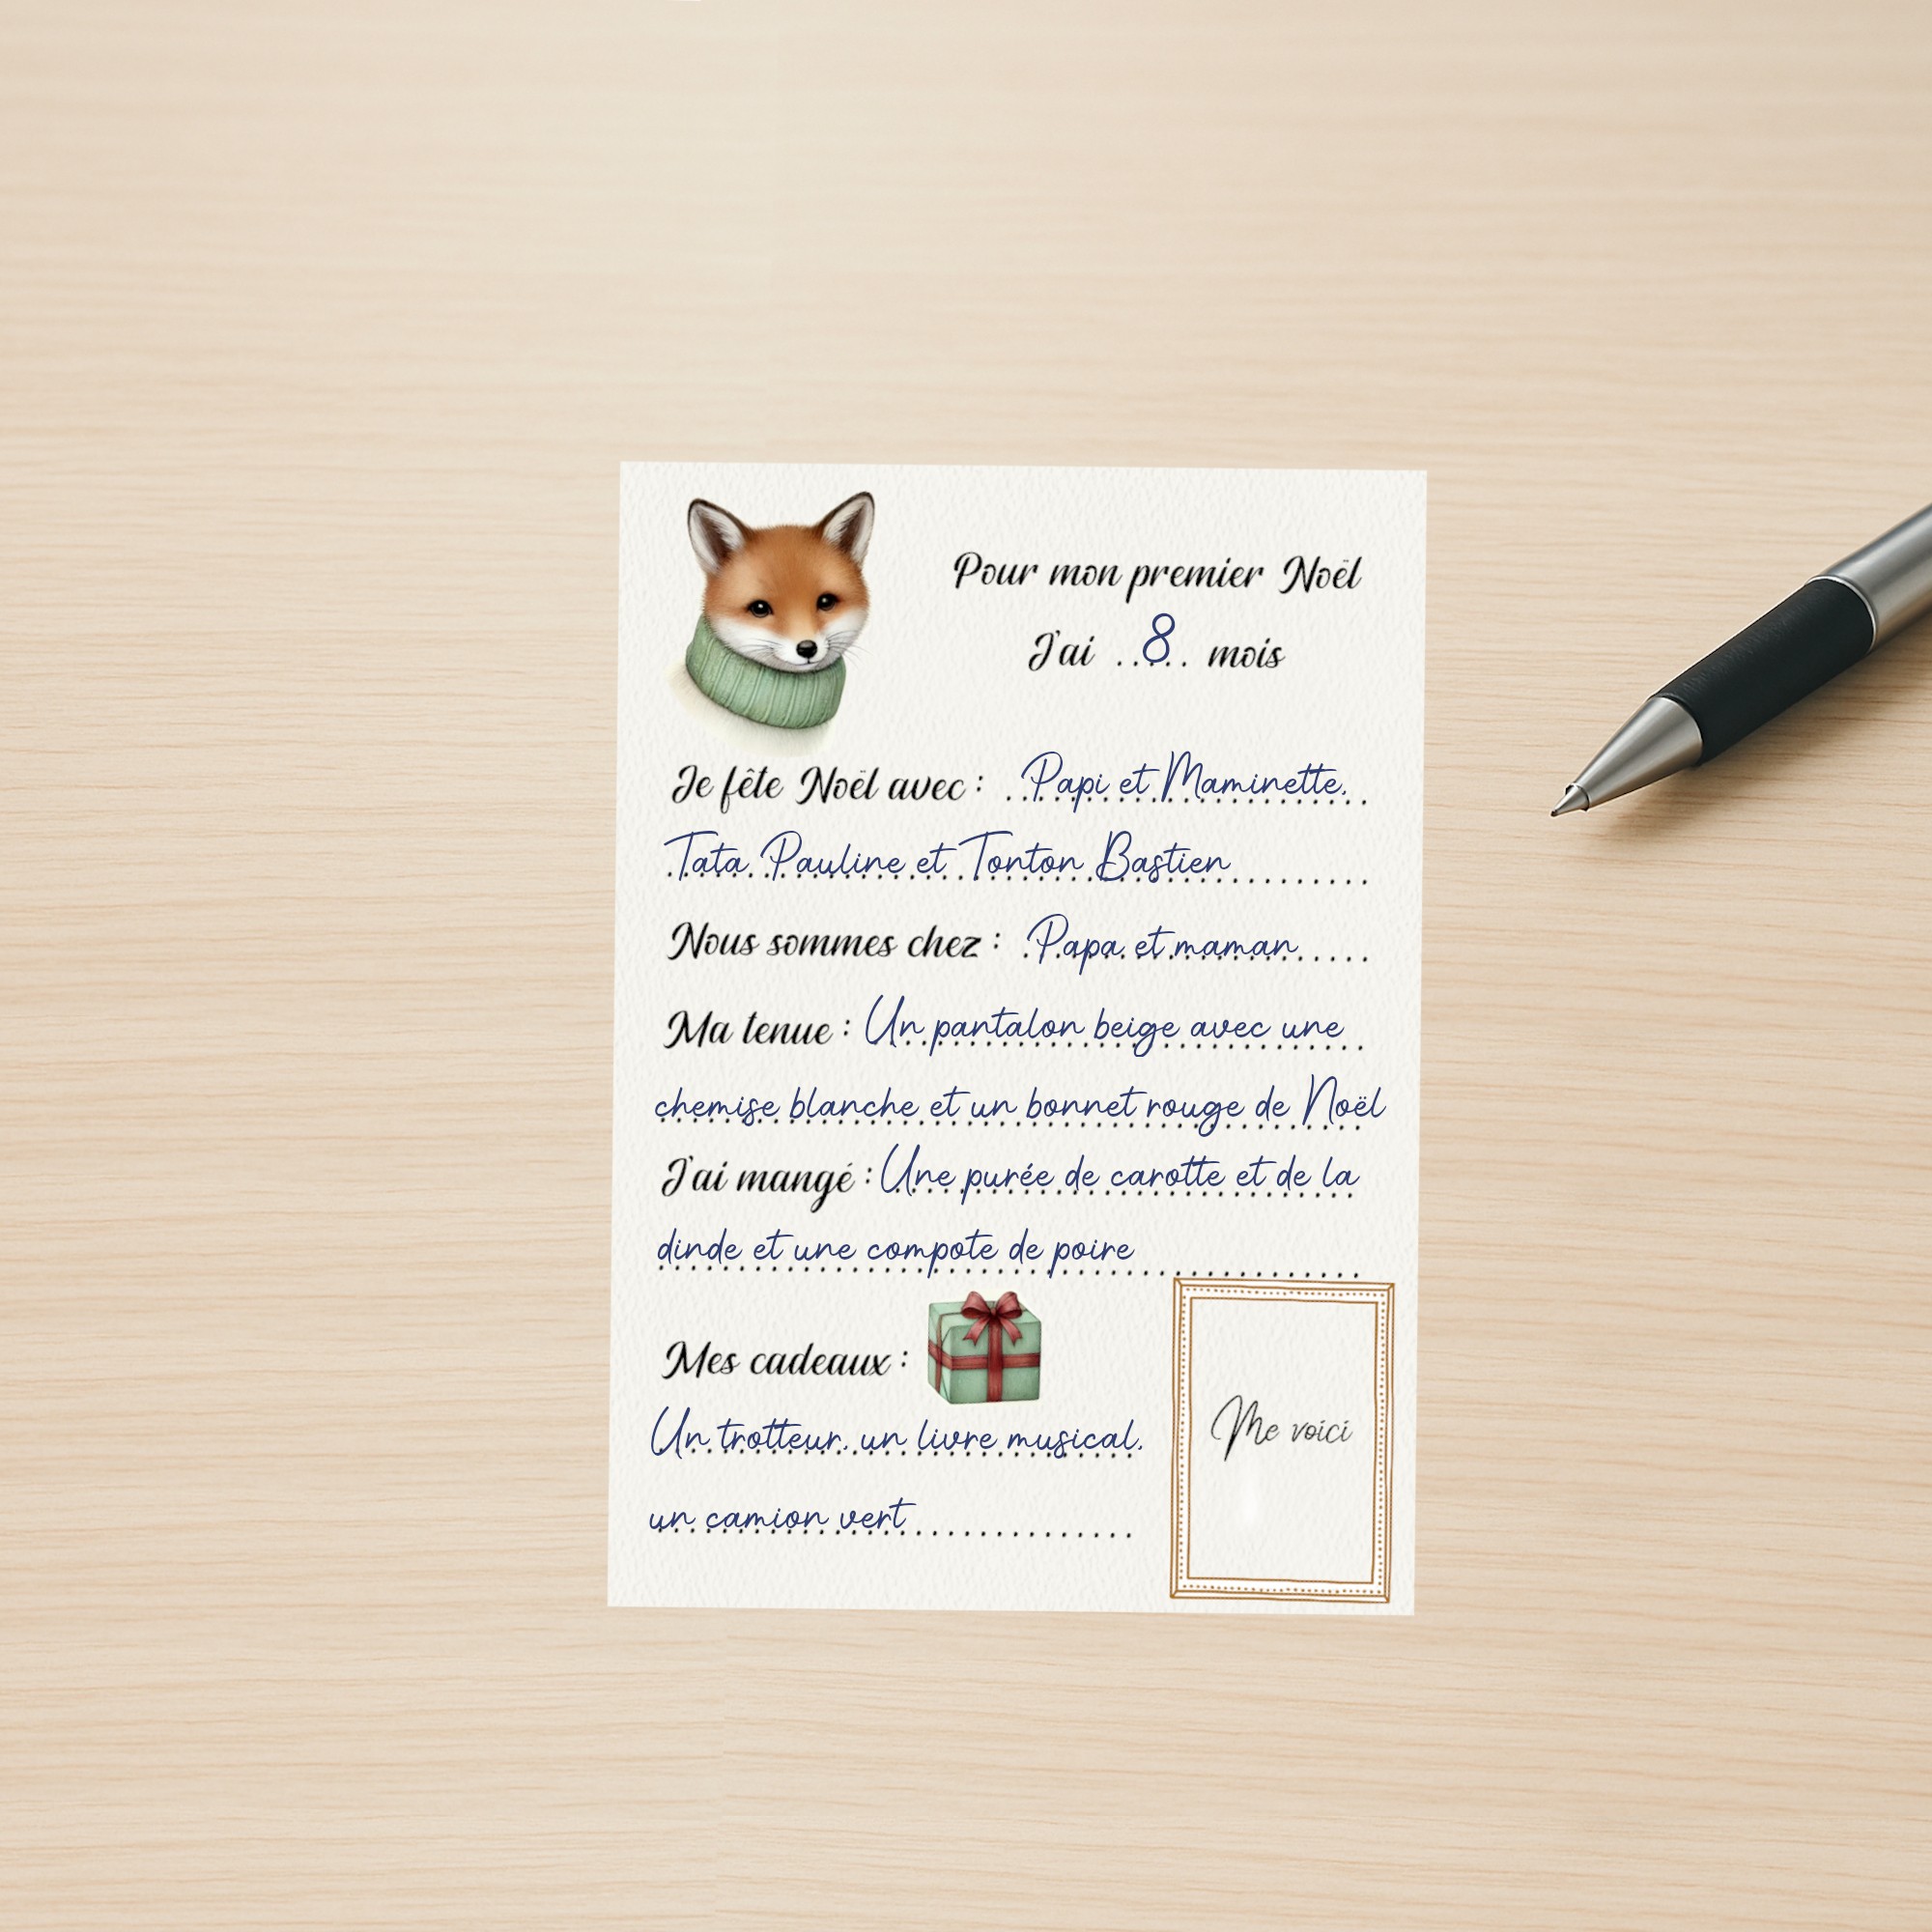 Pour mon premier Noël
J'ai ..8.. mois
Je fête Noël avec : Papi et Maminette,
Tata Pauline et Tonton Bastien
Nous sommes chez : Papa et maman
Ma tenue : Un pantalon beige avec une
chemise blanche et un bonnet rouge de Noël
J'ai mangé : Une purée de carotte et de la
dinde et une compote de poire
Mes cadeaux :
Un trotteur, un livre musical,
un camion vert
Me voici